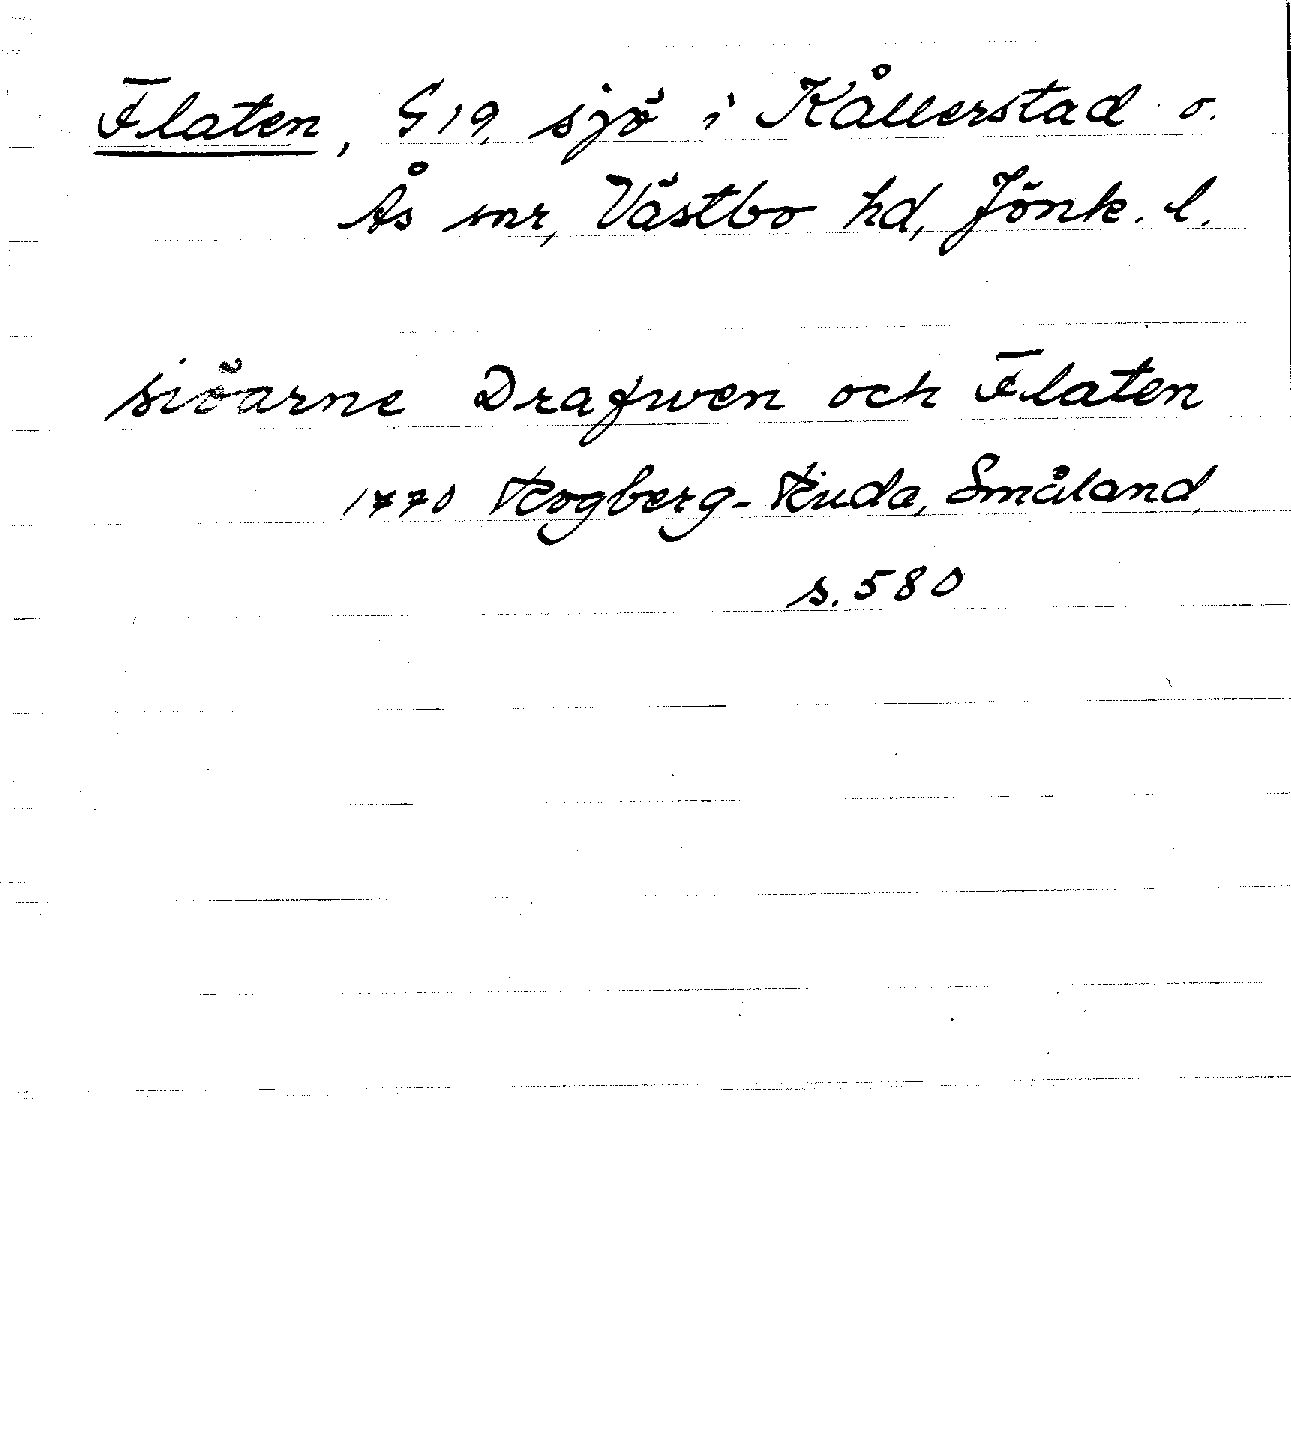 Flaten, S 19, sjö i Kållerstad o.
Ås snr, Västbo hd, Jönk. l.
siöarne Drafwen och Flaten
1770 Rogberg-Ruda, Småland,
s. 580